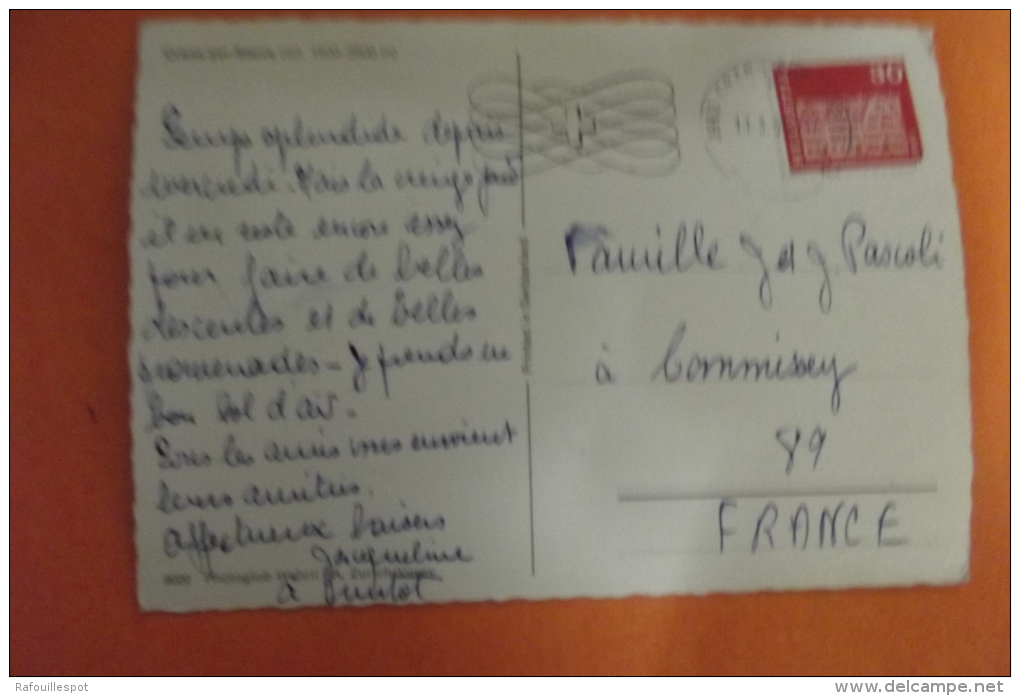 Temps splendide depuis
mercredi. Mais la neige fond
et en reste encore assez
pour faire de belles
descentes et de belles
promenades - Je prends un
bon bol d'air.
Tous les amis vous envoient
leurs amitiés.
Affectueux baisers
Jacqueline
à bientôt
Printed in Switzerland
80
Famille J et J. Pascoli
à Commissey
89
FRANCE
Rafouillespot
www.delcampe.net